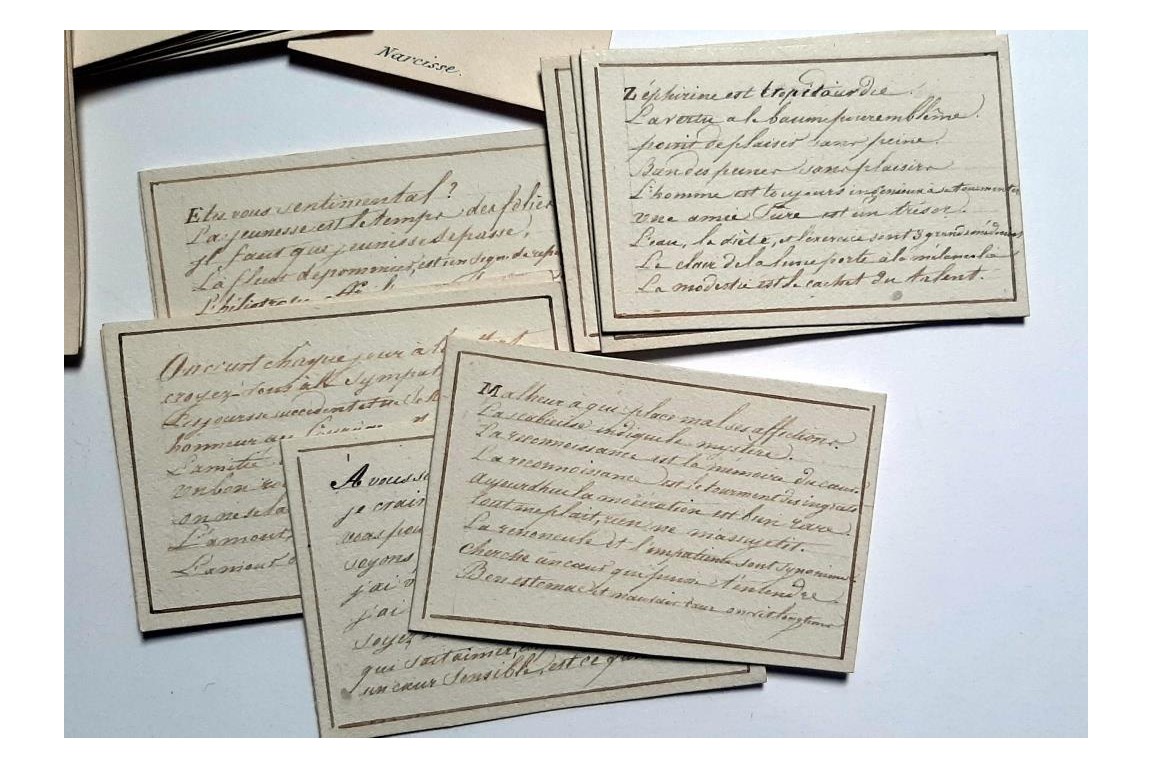 Narcisse.
Zéphirine est trop étourdie.
La vertu a le baume pour emblême.
point de plaisir sans peine.
Bien des peines sans plaisirs
L'homme est toujours ingenieux à se tourmenter
une amie sure est un trésor.
L'eau, la diète, et l'exercice sont 3 grands médecins
Le clair de la lune porte à la mélancolie
La modestie est le cachet du talent.
Etes vous sentimental ?
La jeunesse est le temps des folies
il faut que jeunesse se passe,
La fleur de pommier, est un signe de repe
L'héliotrope
On court chaque jour à la
croyez-vous à la sympat
Les jours se succèdent et ne se
honneur aux
L'amitié
un bon
on ne se la
L'amour,
L'amour
À vous
je crain
vous pou
soyons
j'ai
j'ai
soyez
qui sait aimer,
un cœur sensible, est ce qu
Malheur a qui place mal ses affections
La scabieuse indique le mystère.
La reconnoissance est la mémoire du cœur.
La reconnoissance est le tourment des ingrats
aujourdhui la modération est bien rare.
tout me plait, rien ne m'assujetit.
La renoncule et l'impatiente sont synonimes
cherche un cœur qui puisse t'entendre
Bon estomac et mauvais cœur on vit longtems